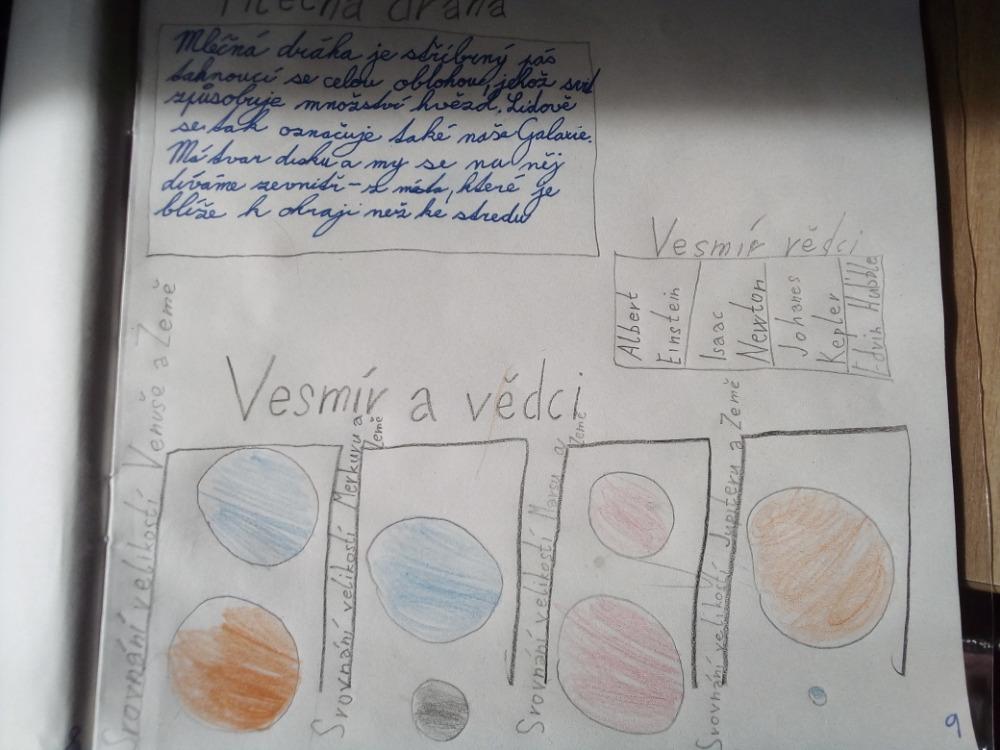 Mléčná dráha
Mléčná dráha je stříbrný pás
táhnoucí se celou oblohou, jehož svit
způsobuje množství hvězd. Lidově
se tak označuje také naše Galaxie.
Má tvar disku a my se na něj
díváme zevnitř - z místa, které je
blíže k okraji než ke středu
Vesmír vědci
Albert
Einstein
Isaac
Newton
Johanes
Kepler
Edvin Hubble
Vesmír a vědci
Srovnání velikostí Venuše a Země
Srovnání velikostí Merkuru a
Země
Srovnání velikostí Marsu a
Země
Srovnání velikostí Jupiteru a Země
9